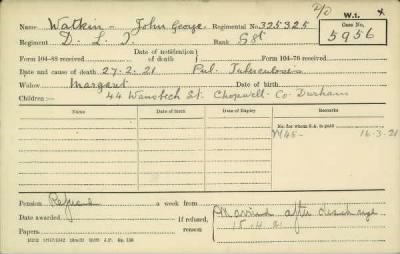 P/O W.1. x
Name Watkin - John George Regimental No 325325 Case No.
Regiment D. L. I. Rank Sgt 5956
Form 104-88 received Date of notification of death Form 104-76 received
Date and cause of death 27-2-21 Pul. Tuberculosis
Widow Margaret Date of birth
Children:— 44 Wansbeck St. Chopwell Co Durham
NAME Date of Birth Date of Expiry Remarks
No. for whom S.A. is paid
16-3-21
Pension Refused a week from
Date awarded If refused, reason Married after discharge
Papers 15-4-21